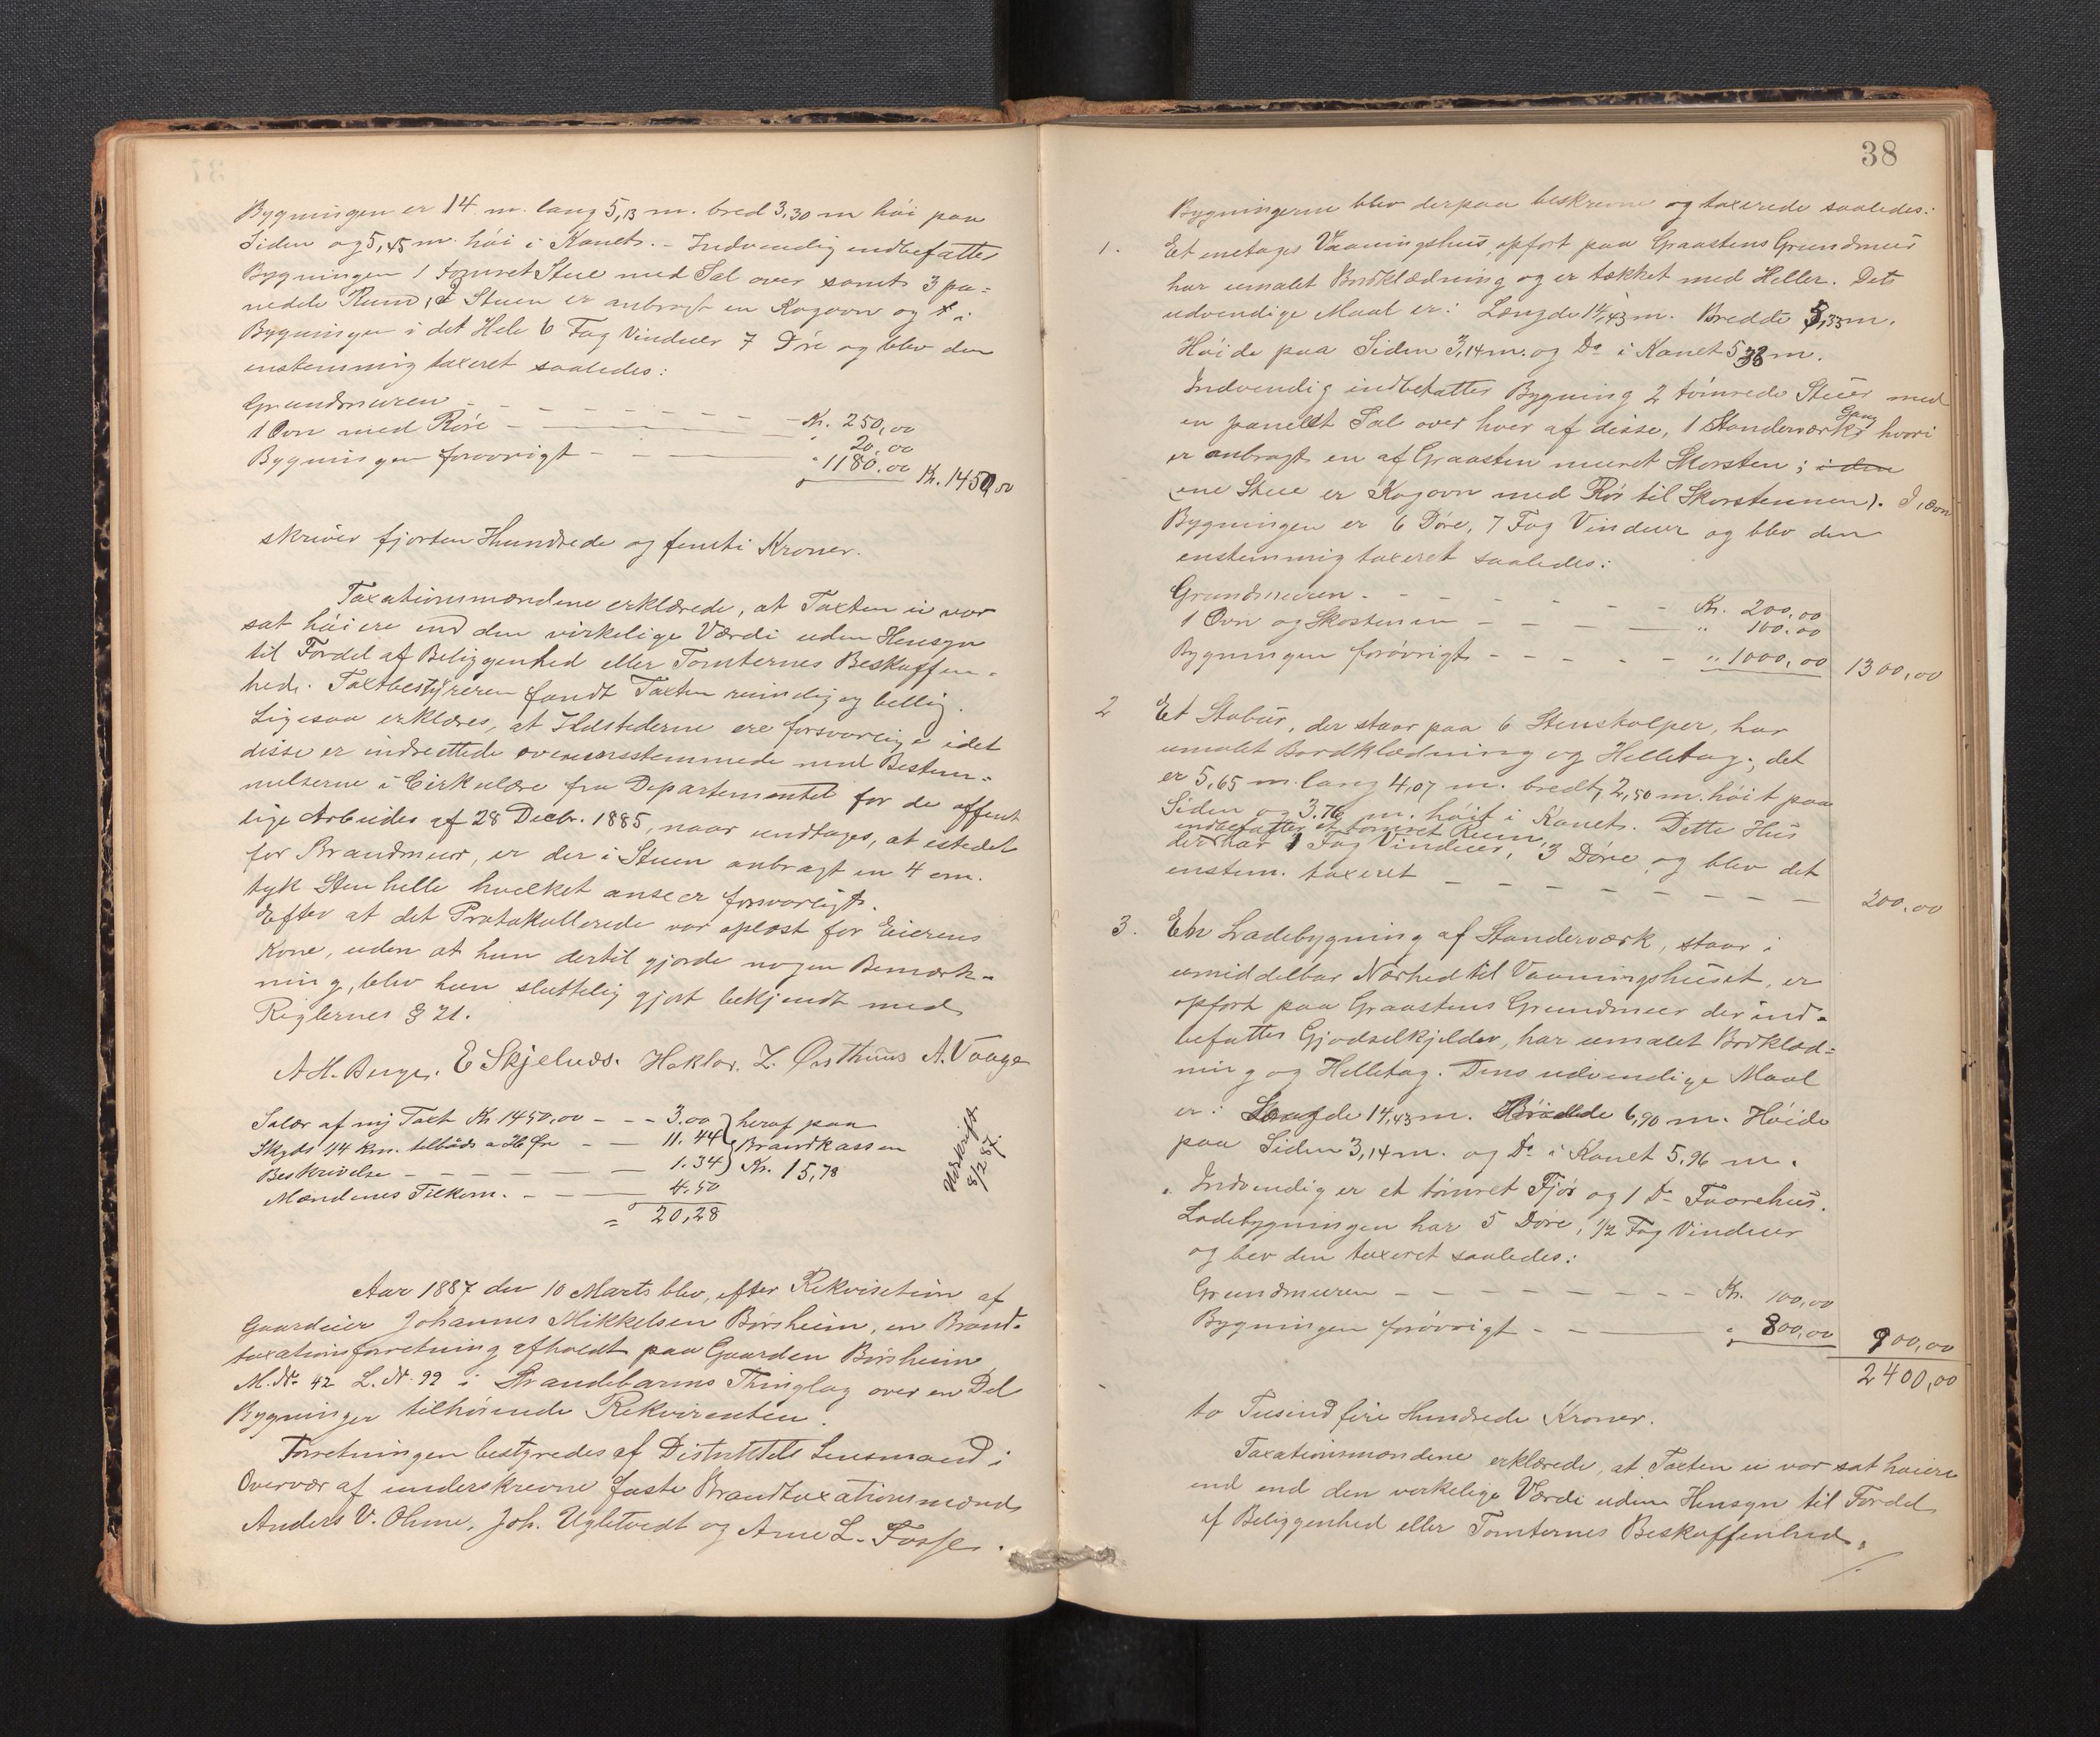 Bygningen er 14 m. lang 5,13 m. bred 3,30 m høi paa
Siden og 5,45 m. høi i Kanet. - Indvendig indbefatter
Bygningen 1 tømret Stue med Sal over samt 3 pa=
nelede Rum, i Stuen er anbragt en Kogovn og i
Bygningen i det Hele 6 Fag Vinduer 7 Døre og blev den
enstemmig taxeret saaledes:
Grundmuren - - - - - - - Kr. 250,00
1 Ovn med Røre - - - - " 20,00
Bygningen forøvrigt - - - " 1180.00 Kr. 1450,00
skriver fjorten Hundrede og femti Kroner.
Taxationsmændene erklærede, at Taxten ei var
sat høiere end den virkelige Værdi uden Hensyn
til Fordel af Beliggenhed eller Tomternes Beskaffen-
hed. Taxtbestyreren fandt Taxten rimelig og billig.
Ligesaa erklæres, at Ildstederne ere forsvarlige idet
disse er indrettede overensstemmede med Bestem-
melserne i Cirkulære fra Departementet for de offent
lige Arbeider af 28 Decbr. 1885, naar undtages, at istedet
for Brandmur, er der i Stuen anbragt en 4 cm.
tyk Sten helle hvilket ansees forsvarligt.
Efter at det Protokollerede var oplæst for Eierens
Kone, uden at hun dertil gjorde nogen Bemærk-
ning, blev hun sluttelig gjort bekjendt med
Reglernes § 21.
A H. Berge. E Skjelnæs. Haktor. L. Østhuus A. Vaage
Salær af ny Taxt Kr 1450,00 - - - 3.00 heraf paa
Skyds 44 km. tilbaads a 26 Øre - - 11.44 Brandkassen
Beskrivelse - - - - - 1.34 Kr. 15,78
Mændenes Tilkom. - - - 4.50
= 20,28
Udskrift
8/2 87.
Aar 1887 den 10 Marts blev, efter Rekvisition af
Gaardeier Johannes Mikkelsen Børsheim, en Brand-
taxationsforretning afholdt paa Gaarden Børsheim
M.Nr. 42 L.Nr. 99 i Strandebarms Thinglag over en Del
Bygninger tilhørende Rekvirenten.
Forretningen bestyredes af Distriktets Lensmand i
Overvær af underskrevne faste Brandtaxationsmænd
Anders V. Ohme, Joh. Ugletvedt og Arne L. Fosse.
38
Bygningerne blev derpaa beskrevne og taxerede saaledes:
1. Et enetages Vaaningshus, opført paa Graastens Grundmur
har umalet Bordklædning og er tækket med Heller. Dets
udvendige Maal er: Længde 14,43 m. Bredde 5,33 m.
Høide paa Siden 3,14 m. og Do i Kanet 5,38 m.
Indvendig indbefatter Bygning 2 tømrede Stuer med
en panelet Sal over hver af disse, 1 Standerværks Gang hvori
er anbragt en af Graasten muret Skorsten; i den
ene Stue er Kogovn med Rør til Skorstenen). I, ovn
Bygningen er 6 Døre, 7 Fag Vinduer og blev den
enstemmig taxeret saaledes:
Grundmuren - - - - - - - Kr. 200,00
1 Ovn og Skostenen - - - - " 100,00
Bygningen forøvrigt - - - - " 1000,00 1300,00
2 Et Stabur, der staar paa 6 Stenstolper, har
umalet Bordklædning og Helletag; det
er 5,65 m. lang 4,07 m. bredt, 2,50 m. høit paa
Siden og 3.76 m. høit i Kanet. Dette Hus
indbefatter et tømret Rum,
der har 1 Fag Vinduer, 3 Døre, og blev det
enstem. taxeret - - - - - - - 200,00
3. En Ladebygning af Standerværk, staar i
umiddelbar Nærhed til Vaaningshuset, er
opført paa Graastens Grundmur der ind-
befatter Gjødselkjelder, har umalet Bordklæd=
ning og Helletag. Dens udvendige Maal
er: Længde 14,43 m. Bredde 6,90 m. Høide
paa Siden 3,14 m. og Do i Kanet 5,96 m.
Indvendig er et tømret Fjøs og 1 Do Faarehus.
Ladebygningen har 5 Døre, 1/2 Fag Vinduer
og blev den taxeret saaledes:
Grundmuren - - - - - - - - Kr. 100,00
Bygningen forøvrigt - - - " 800,00 900,00
2400,00
to Tusind fire Hundrede Kroner.
Taxationsmændene erklærede, at Taxten ei var sat høiere
end end den verkelige Værdi uden Hensyn til Fordel
af Beliggenhed eller Tomternes Beskaffenhed.